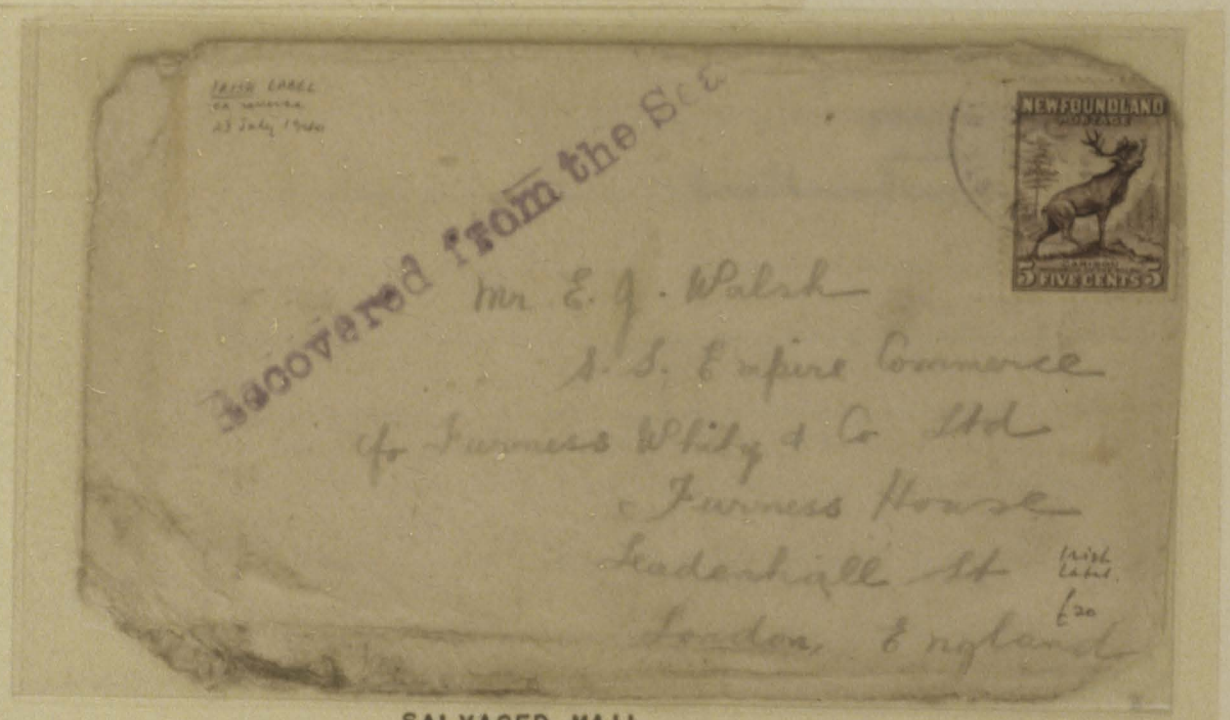 IRISH LABEL
on reverse
23 July 1940
Recovered from the Sea
NEWFOUNDLAND
POSTAGE
CARIBOU
5 FIVE CENTS 5
Mr E. J. Walsh
S. S. Empire Commerce
c/o Furness Whity & Co Ltd
Furness House
Leadenhall St
London, England
Irish
Label.
£20
SALVAGED MAIL